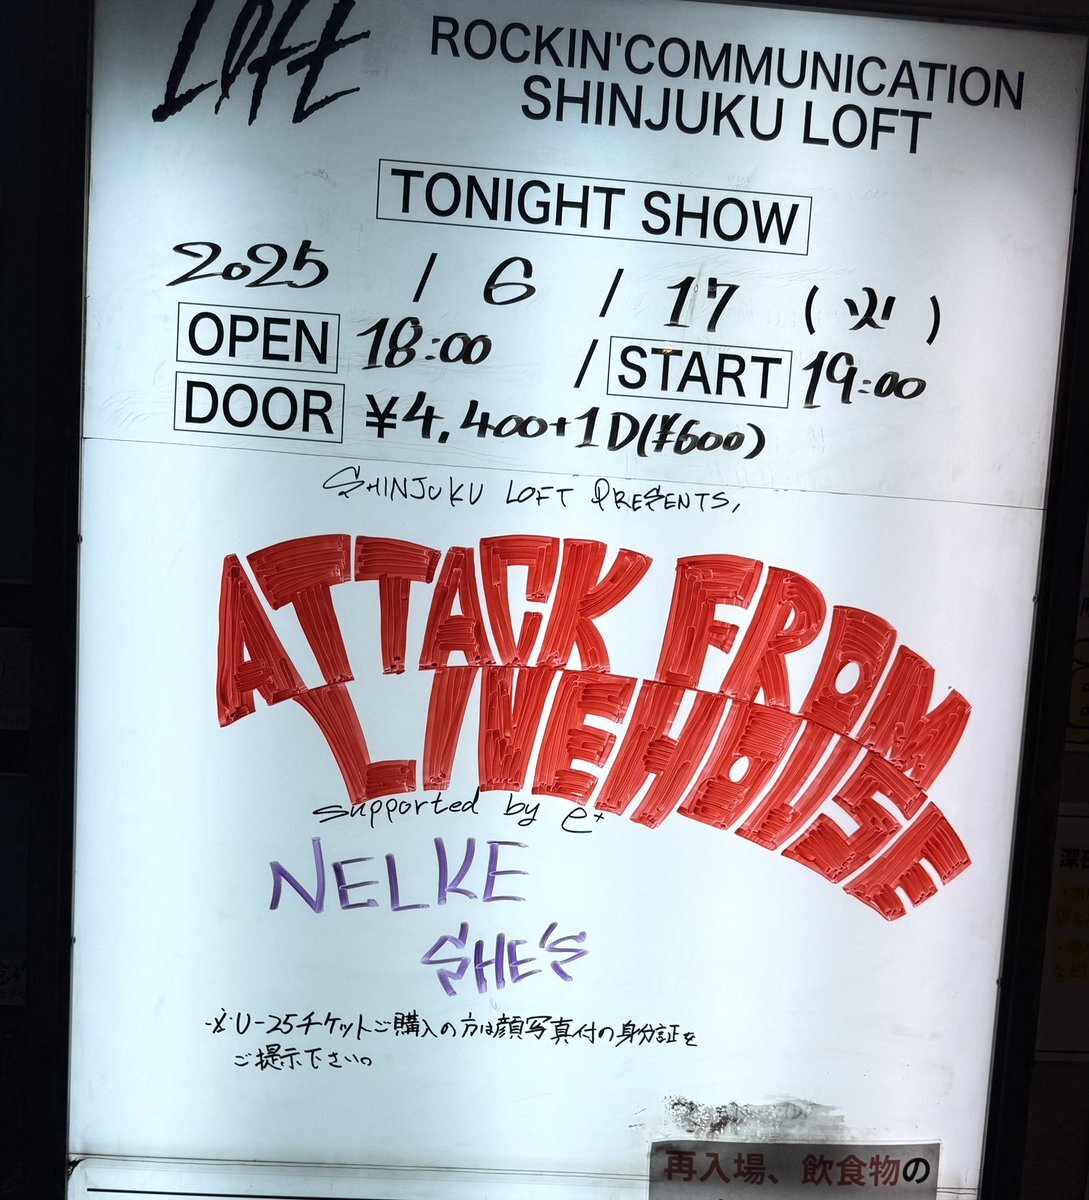 LOFT
ROCKIN'COMMUNICATION
SHINJUKU LOFT
TONIGHT SHOW
2025 / 6 / 17 (火)
OPEN 18:00 / START 19:00
DOOR ¥4,400+1D(¥600)
SHINJUKU LOFT PRESENTS,
ATTACK FROM
LIVEHOUSE
supported by e+
NELKE
SHE'S
※U-25チケットご購入の方は顔写真付の身分証を
ご提示下さい。
再入場、飲食物の